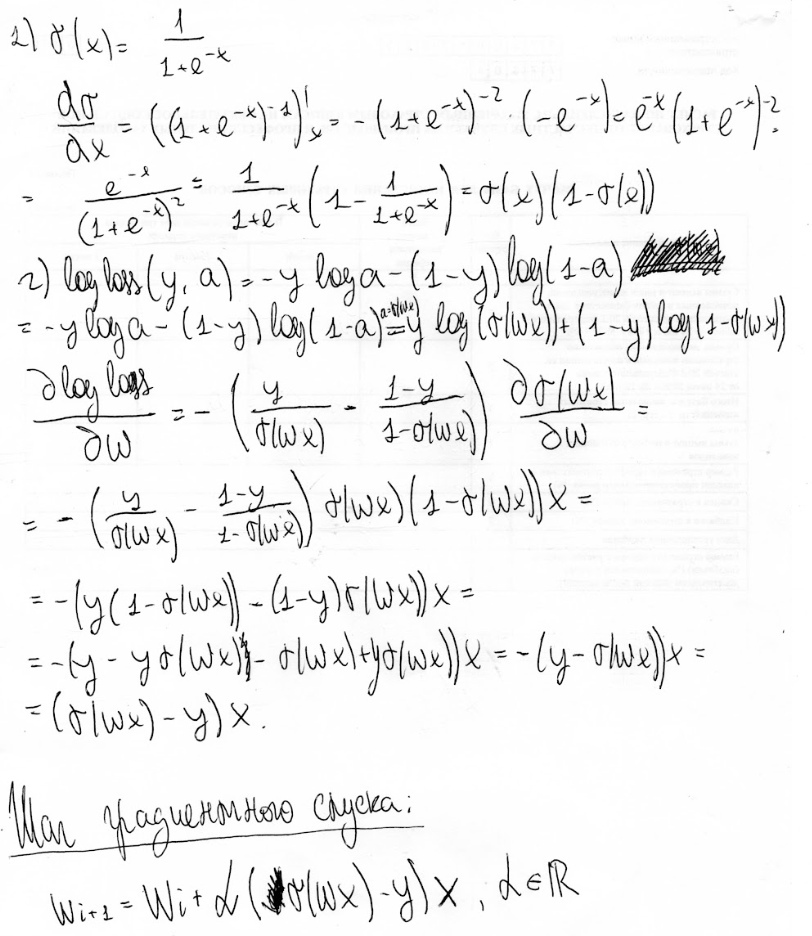 1) σ(x) = 1/(1+e^{-x})
dσ/dx = ((1+e^{-x})^{-1})'_x = -(1+e^{-x})^{-2} · (-e^{-x}) = e^{-x}(1+e^{-x})^{-2} =
= e^{-x}/(1+e^{-x})^2 = 1/(1+e^{-x}) (1 - 1/(1+e^{-x})) = σ(x)(1-σ(x))
2) log loss(y, a) = -y log a - (1-y) log(1-a)
= -y log a - (1-y) log(1-a) =^{a=σ(wx)} y log(σ(wx)) + (1-y) log(1-σ(wx))
∂ log loss/∂w = - (y/σ(wx) - (1-y)/(1-σ(wx))) ∂σ(wx)/∂w =
= - (y/σ(wx) - (1-y)/(1-σ(wx))) σ(wx)(1-σ(wx)) x =
= -(y(1-σ(wx)) - (1-y)σ(wx)) x =
= -(y - yσ(wx) - σ(wx) + yσ(wx)) x = -(y-σ(wx)) x =
= (σ(wx) - y) x.
Шаг градиентного спуска:
w_{i+1} = w_i + α(σ(wx) - y) x, α ∈ ℝ